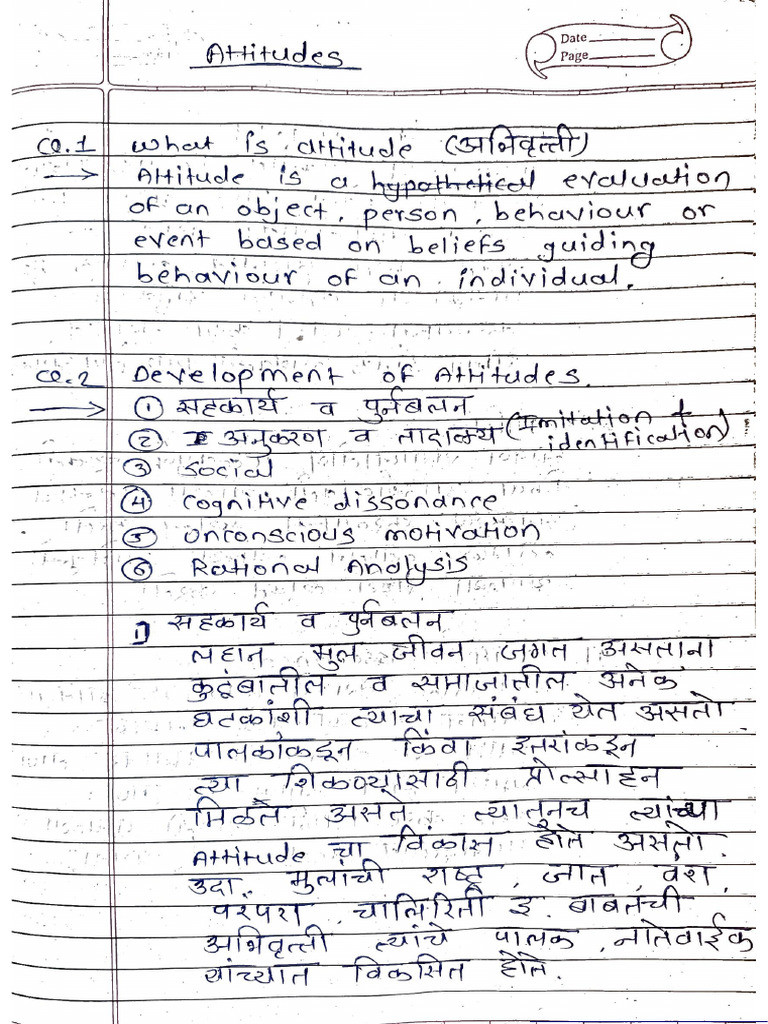 Attitudes
Date
Page
Q.1 What is attitude (अभिवृत्ती)
→ Attitude is a hypothetical evaluation
of an object, person, behaviour or
event based on beliefs guiding
behaviour of an individual.
Q.2 Development of Attitudes.
→ ① सहकार्य व पुर्नबलन
② अनुकरण व तादात्म्य (Imitation + identification)
③ Social
④ Cognitive dissonance
⑤ Unconscious motivation
⑥ Rational Analysis
1) सहकार्य व पुर्नबलन
लहान मुल जीवन जगत असताना
कुटूंबातील व समाजातील अनेक
घटकांशी त्याचा संबंध येत असतो.
पालकांकडून किंवा इतरांकडून
त्या शिकण्यासाठी प्रोत्साहन
मिळते असते त्यातूनच त्यांच्या
Attitude चा विकास होते असतो.
उदा. मुलांची राष्ट्र, जात, वंश,
परंपरा, चालिरिती इ. बाबतची
अभिवृत्ती त्यांचे पालक, नातेवाईक
यांच्यात विकसित होते.